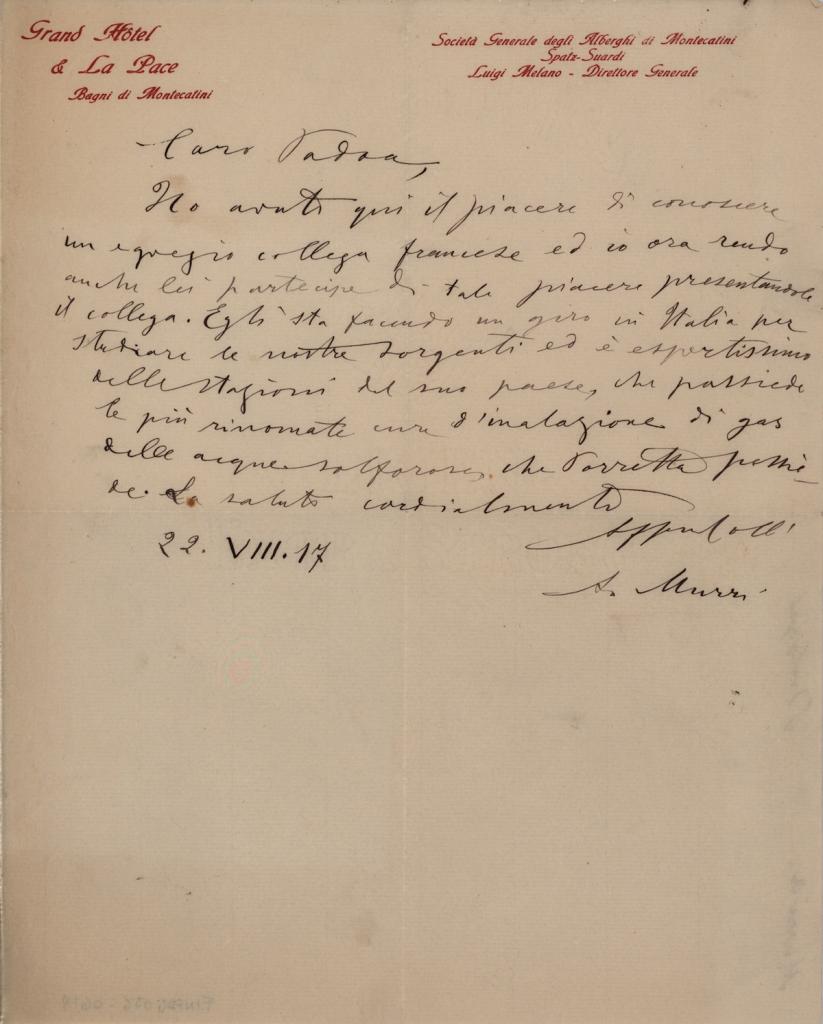 Grand Hôtel
& La Pace
Bagni di Montecatini
Società Generale degli Alberghi di Montecatini
Spatz-Suardi
Luigi Melano - Direttore Generale
Caro Padoa,
Ho avuto qui il piacere di conoscere
un egregio collega francese ed io ora rendo
anche lei partecipe di tale piacere presentandole
il collega. Egli sta facendo un giro in Italia per
studiare le nostre sorgenti ed è espertissimo
delle stazioni del suo paese, che possiede
le più rinomate cure d'inalazione di gas
delle acque solforose, che Porretta possie-
de. La saluto cordialmente
22. VIII. 17
A. Murri